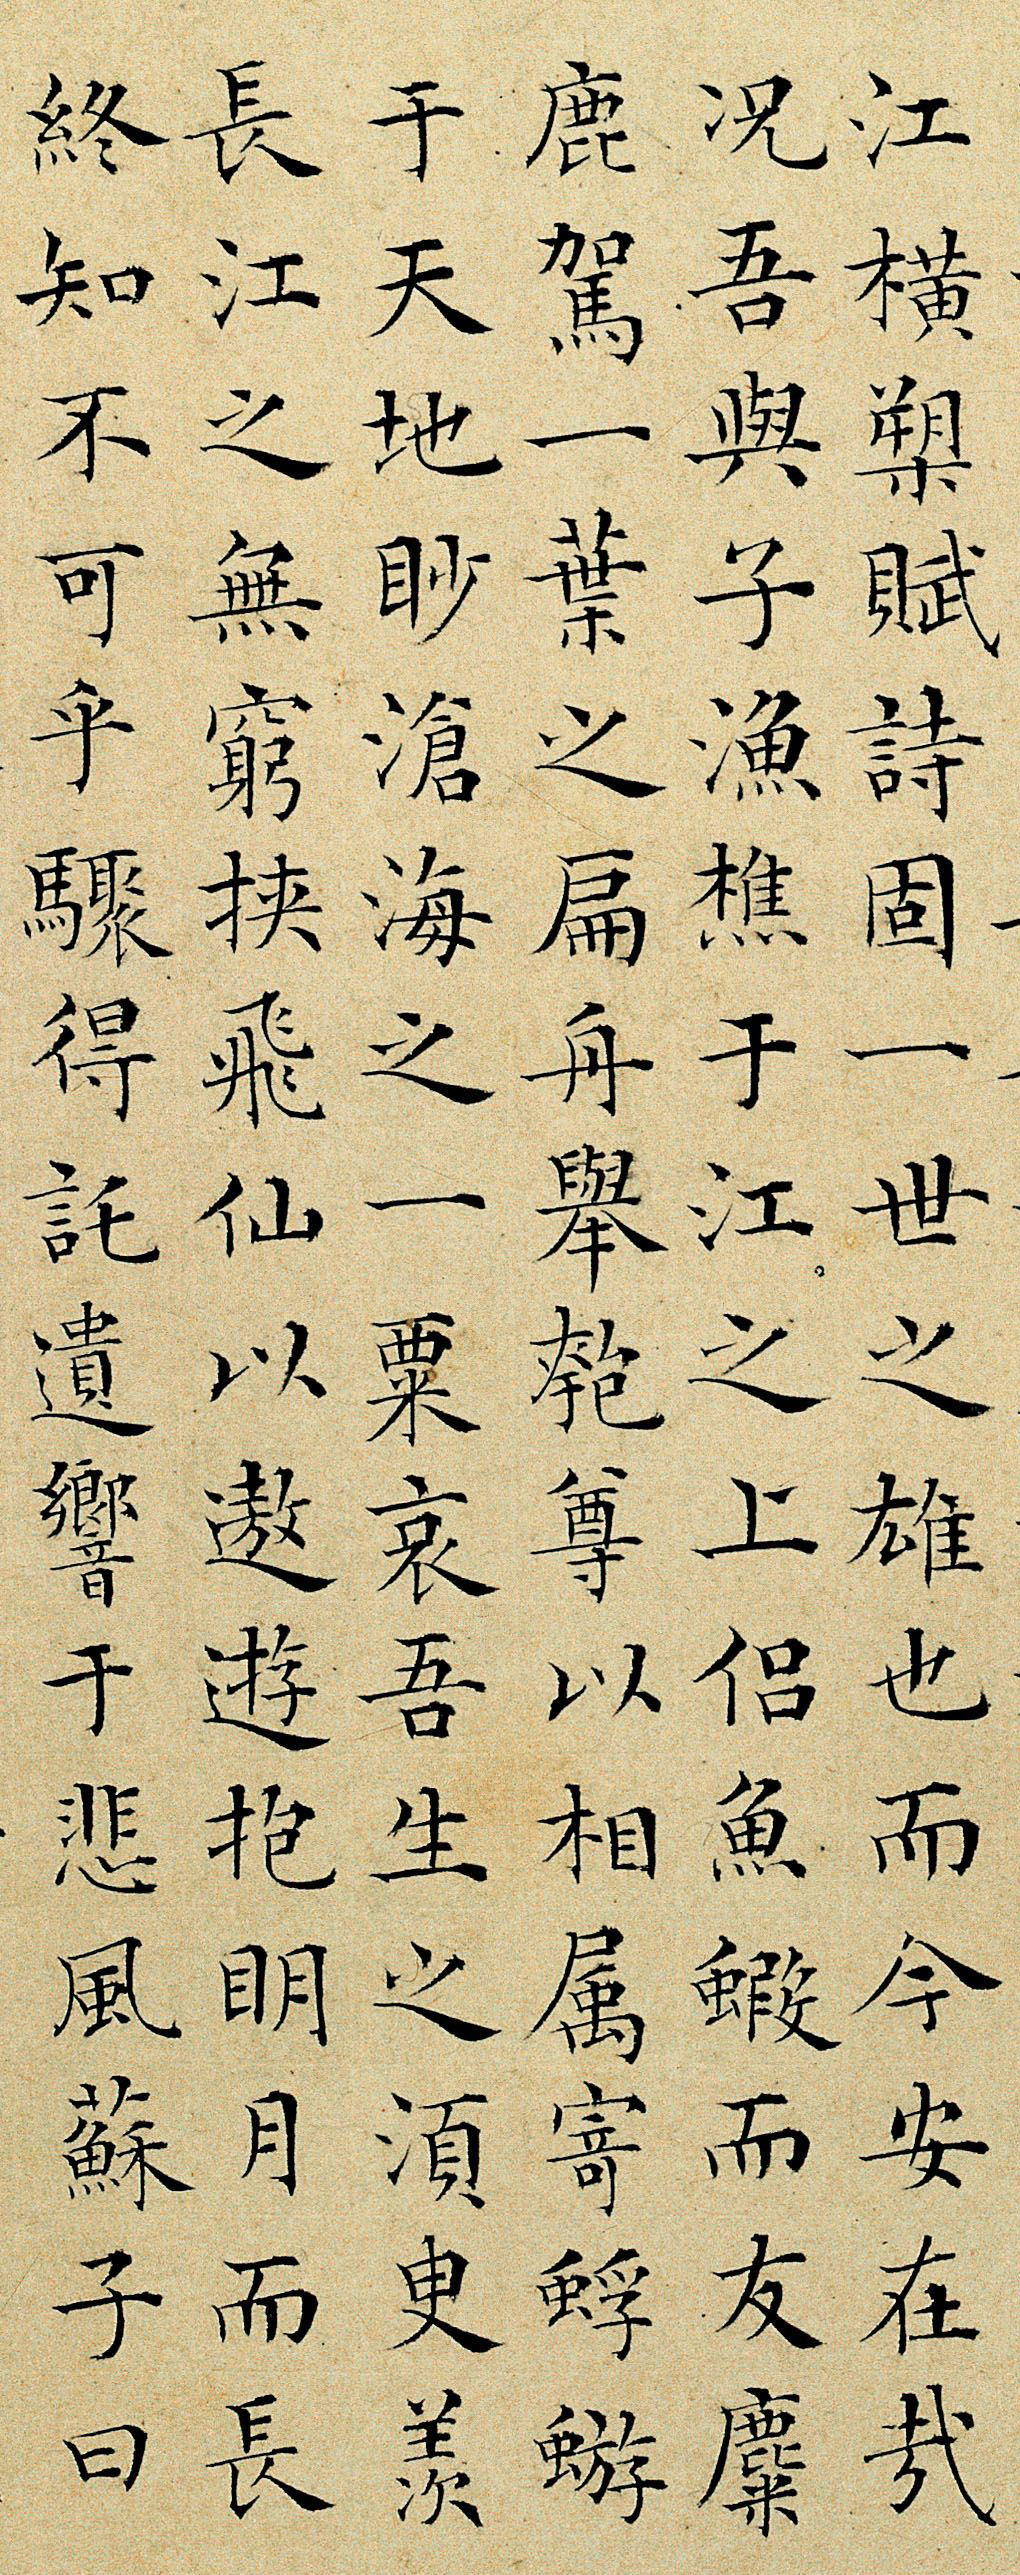 江橫槊賦詩固一世之雄也而今安在哉
况吾與子漁樵于江之上侶魚蝦而友麋
鹿駕一葉之扁舟舉匏尊以相属寄蜉蝣
于天地眇滄海之一粟哀吾生之須臾羨
長江之無窮挾飛仙以遨遊抱明月而長
終知不可乎驟得託遺響于悲風蘇子曰